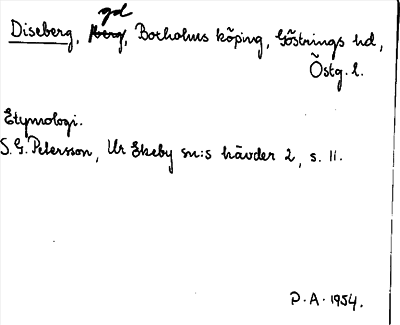 gd
Diseberg, herg, Borholms köping, Göstrings hd,
Östg. l.
Etymologi.
S. G. Petersson, Ur Ekeby sn:s hävder 2, s. 11.
P. A. 1954.